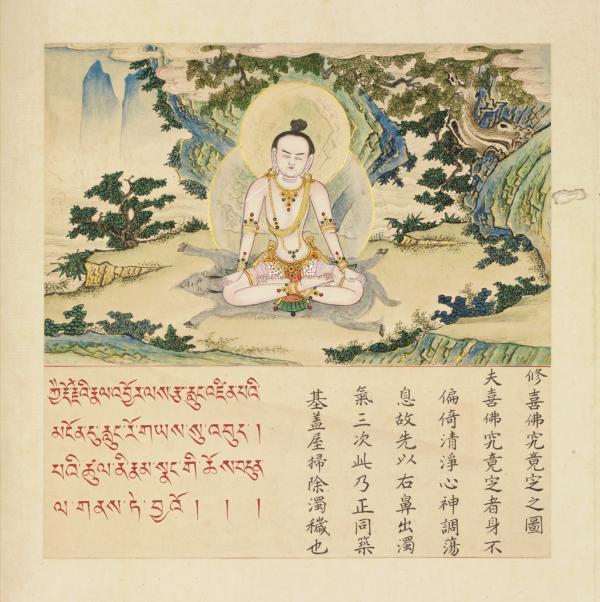 ཀྱཻ་རྡོ་རྗེའི་རྣལ་འབྱོར་ལས་རྩ་རླུང་འཛིན་པའི
མངོན་དུ་རླུང་རོ་གཡས་སུ་འབུད །
པའི་ཚུལ་ནི་རྣམ་སྣང་གི་ཆོས་བདུན
ལ་གནས་ཏེ་བྱའོ ། ། །
修喜佛究竟定之圖
夫喜佛究竟定者身不
偏倚清淨心神調蕩
息故先以右鼻出濁
氣三次此乃正同築
基蓋屋掃除濁穢也